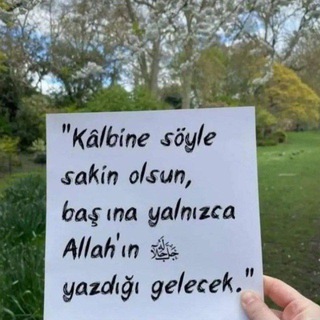 "Kâlbine söyle
sakin olsun,
başına yalnızca
Allah'ın ﷻ
yazdığı gelecek."